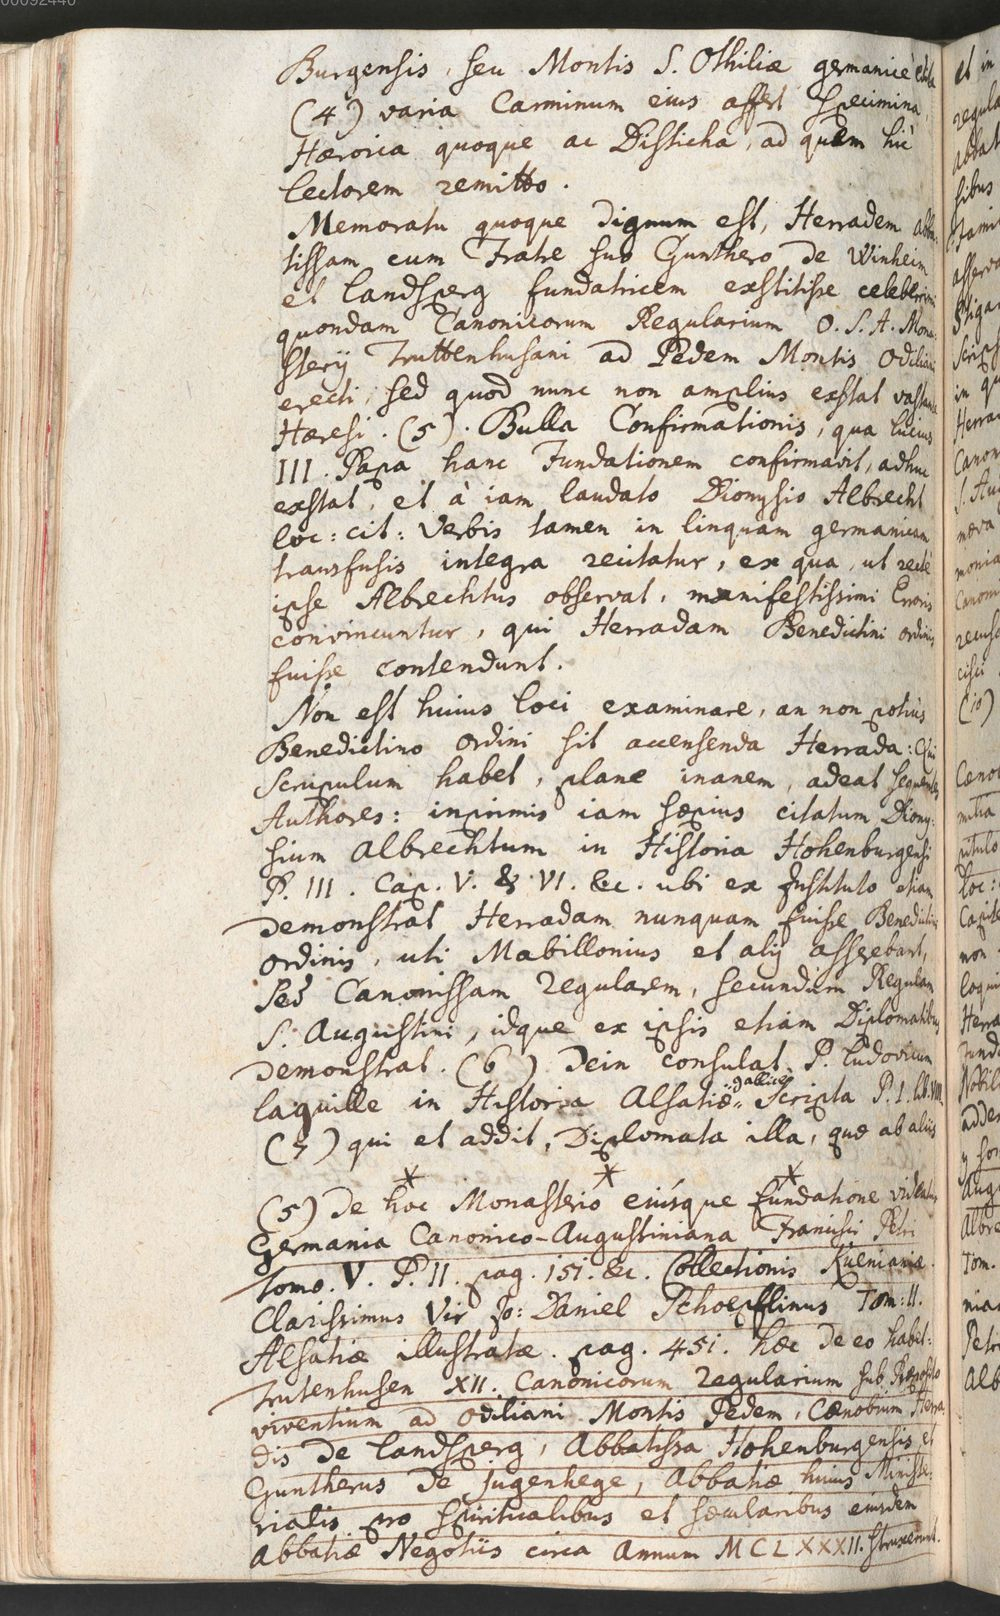 Burgensis, seu Montis S. Othiliæ germanice edita
(4) varia Carminum eius affert specimina,
Hæroica quoque ac Disticha, ad quem hic
lectorem remitto.
Memoratu quoque dignum est, Herradem abba-
tissam cum Fratre suo Gunthero de Winheim
et landsperg fundatricem exstitisse celeberrimi
quondam Canonicorum Regularium O. S. A. Mona-
sterij Truttenhusani ad Pedem Montis Odiliani
erecti, sed quod nunc non amplius exstat vastante
Hæresi. (5). Bulla Confirmationis, qua lucius
III. Papa hanc Fundationem confirmavit, adhuc
exstat, et à iam laudato Dionysio Albrecht
loc: cit: verbis tamen in linguam germanicam
transfusis integra recitatur, ex qua, ut recte
ipse Albrechtus observat, manifestissimi Erroris
convincuntur, qui Herradam Benedictini ordinis
fuisse contendunt.
Non est huius loci examinare, an non potius
Benedictino ordini sit accensenda Herrada: Qui
scrupulum habet, plane inanem, adeat sequentes
Authores: inprimis iam sæpius citatum Diony-
sium Albrechtum in Historia Hohenburgensi
P. III. Cap. V. & VI. &c. ubi ex Instituto etiam
demonstrat Herradam nunquam fuisse Benedictini
ordinis, uti Mabillonius et alij asserebant,
sed Canonissam regularem, secundum Regulam
S. Augustini, idque ex ipsis etiam Diplomatibus
demonstrat. (6) Dein consulat P. ludovicum
laguille in Historia Alsatiæ gallice scripta P. I. lib. VIII.
(7) qui et addit, Diplomata illa, quæ ab aliis
* * *
(5) De hoc Monasterio eiusque fundatione videatur
Germania Canonico-Augustiniana Francisci Petri
tomo. V. P. II. pag. 151. &c. Collectionis Kuenianæ.
Clarissimus Vir Jo: Daniel Schoepflinus Tom: II.
Alsatiæ illustratæ. pag. 451. hæc de eo habet:
Trutenhusen XII. Canonicorum regularium sub Præposito
viventium ad Odiliani Montis Pedem, Cænobium Herra-
dis de landsperg, Abbatissa Hohenburgensis et
Guntherus de jugenhege, Abbatiæ huius Ministe-
rialis pro spiritualibus et sæcularibus eiusdem
Abbatiæ Negotiis circa Annum MCLXXXII. struxerunt.